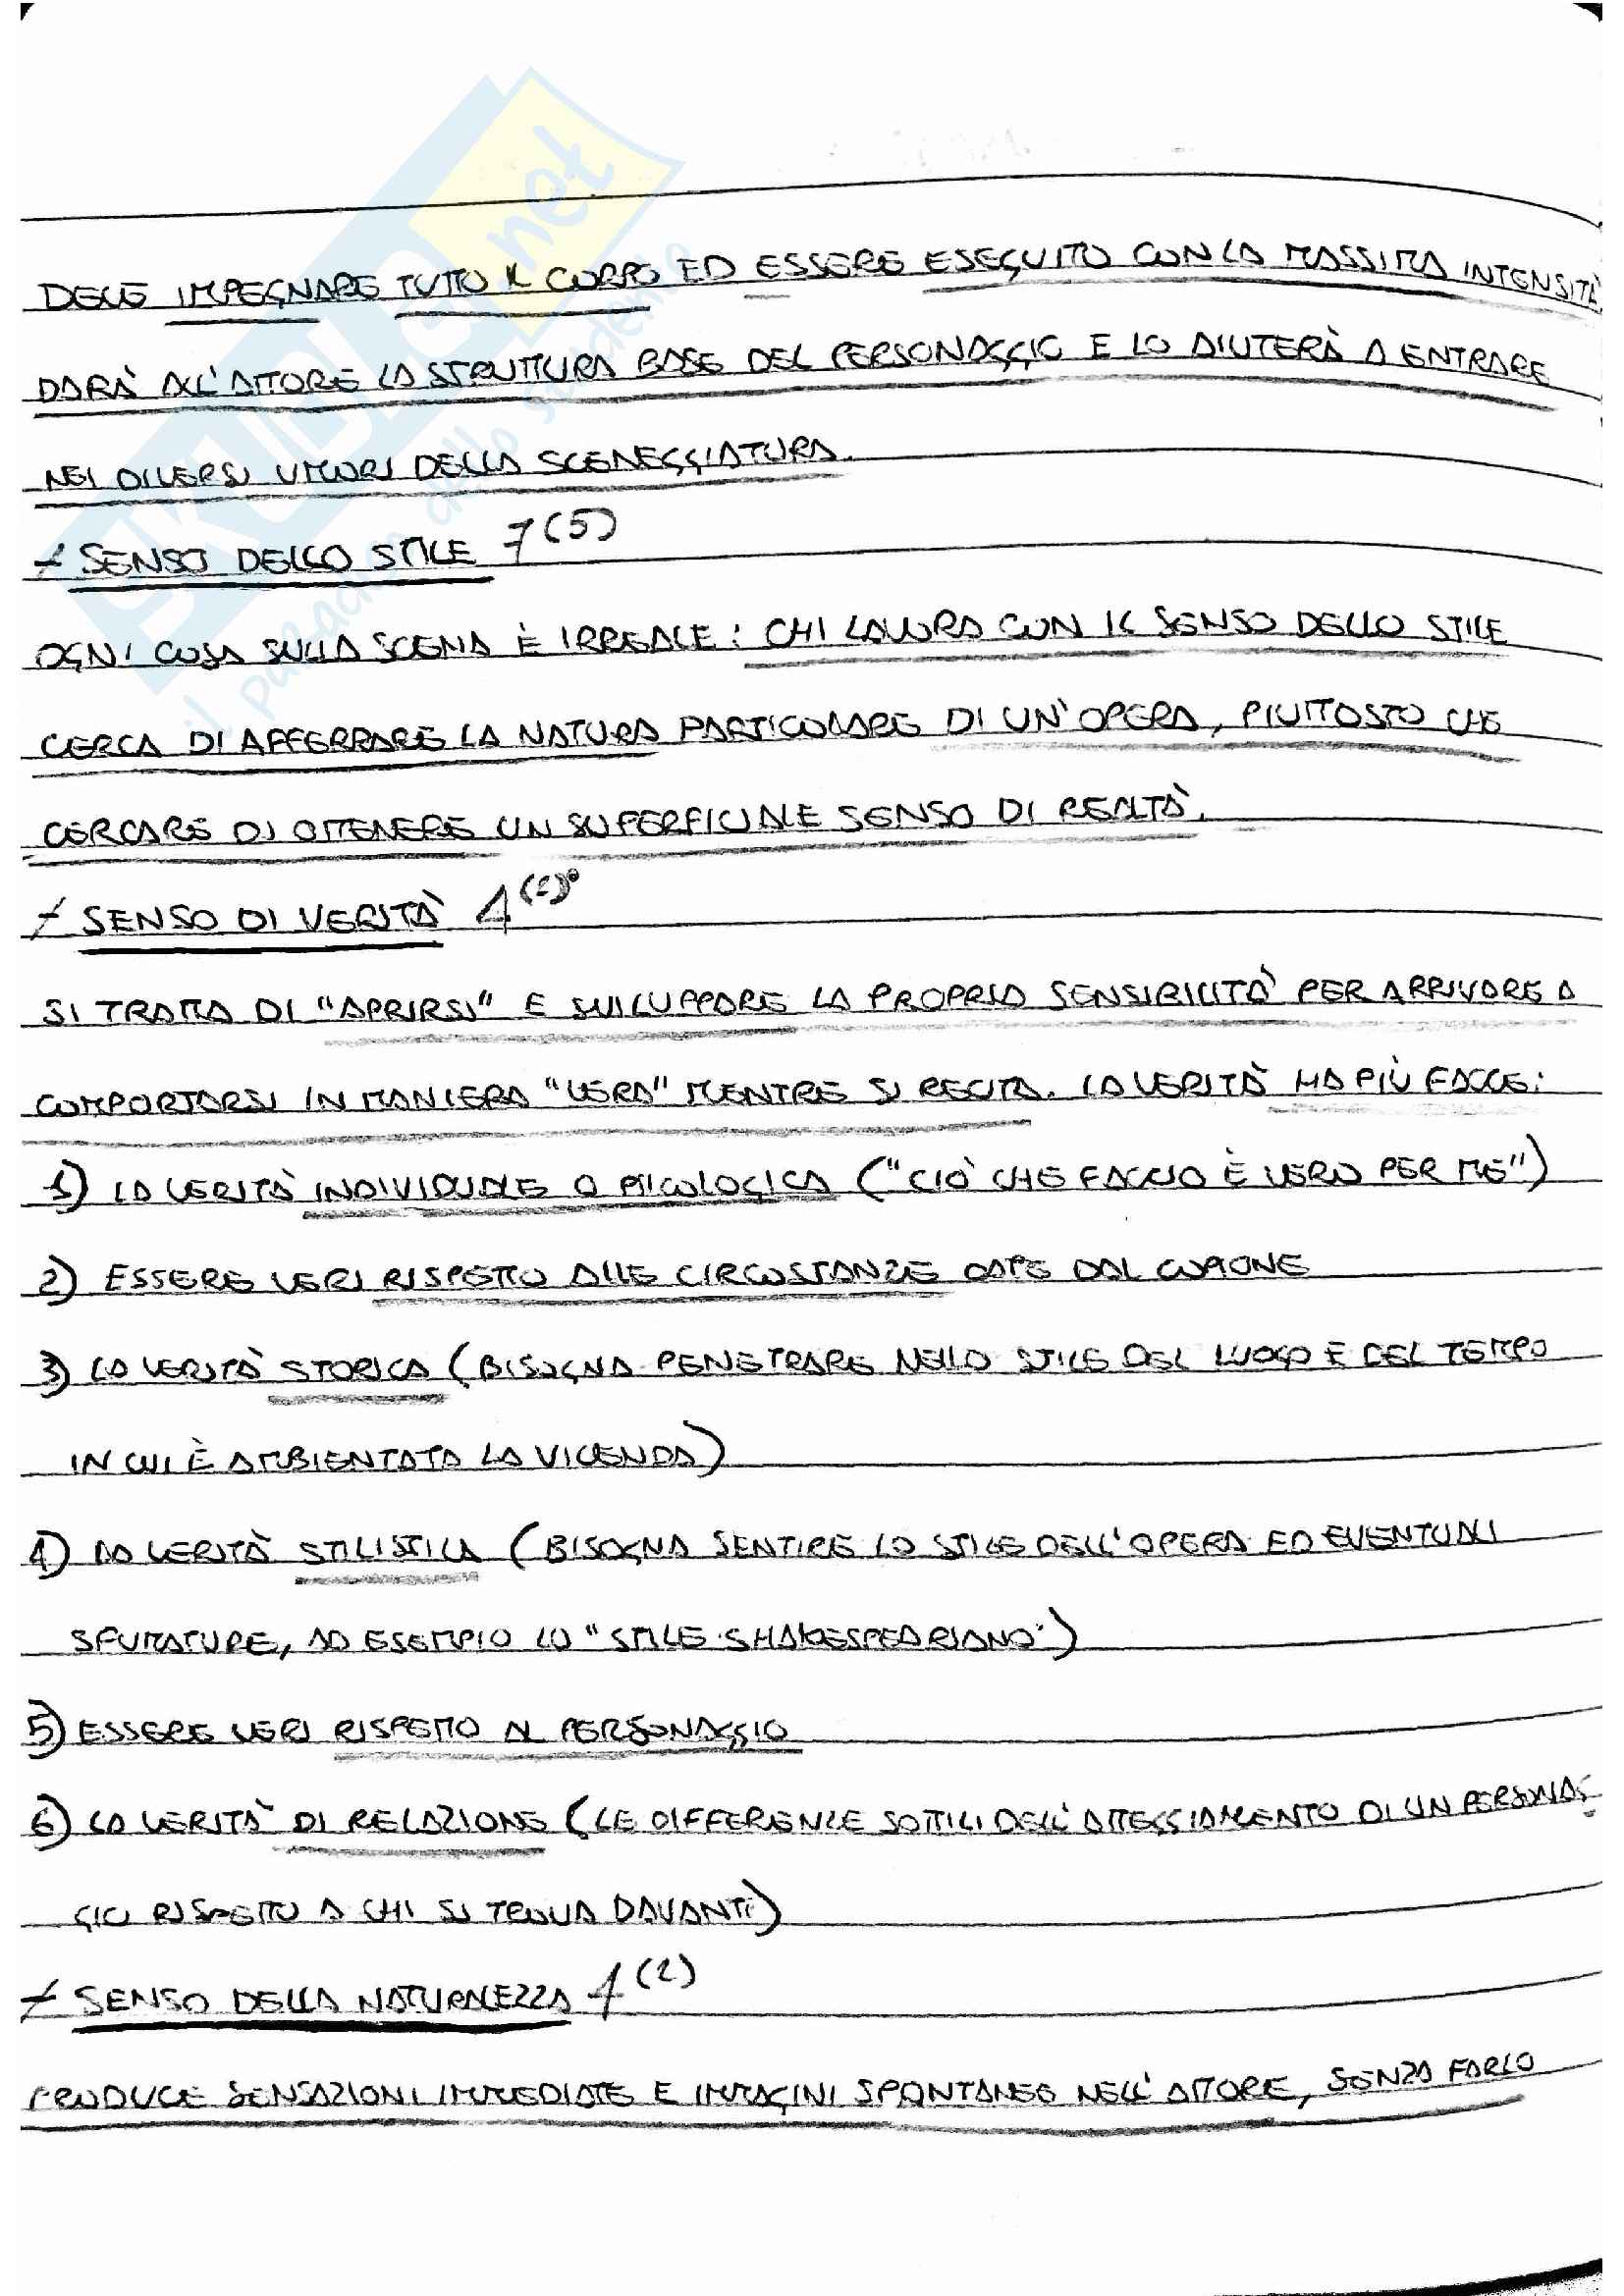 DEVE IMPEGNARE TUTTO IL CORPO ED ESSERE ESEGUITO CON LA MASSIMA INTENSITÀ
DARÀ ALL'ATTORE LA STRUTTURA BASE DEL PERSONAGGIO E LO AIUTERÀ A ENTRARE
NEI DIVERSI UMORI DELLA SCENEGGIATURA.
SENSO DELLO STILE 7(5)
OGNI COSA SULLA SCENA È IRREALE: CHI LAVORA CON IL SENSO DELLO STILE
CERCA DI AFFERRARE LA NATURA PARTICOLARE DI UN'OPERA, PIUTTOSTO CHE
CERCARE DI OTTENERE UN SUPERFICIALE SENSO DI REALTÀ.
SENSO DI VERITÀ
SI TRATTA DI "APRIRSI" E SVILUPPARE LA PROPRIA SENSIBILITÀ PER ARRIVARE A
COMPORTARSI IN MANIERA "VERA" MENTRE SI RECITA. LA VERITÀ HA PIÙ FACCE:
1) LA VERITÀ INDIVIDUALE O PSICOLOGICA ("CIÒ CHE FACCIO È VERO PER ME")
2) ESSERE VERI RISPETTO ALLE CIRCOSTANZE DATE DAL COPIONE
3) LA VERITÀ STORICA (BISOGNA PENETRARE NELLO STILE DEL LUOGO E DEL TEMPO
IN CUI È AMBIENTATA LA VICENDA)
4) LA VERITÀ STILISTICA (BISOGNA SENTIRE LO STILE DELL'OPERA ED EVENTUALI
SFUMATURE, AD ESEMPIO LO "STILE SHAKESPEARIANO")
5) ESSERE VERI RISPETTO AL PERSONAGGIO
6) LA VERITÀ DI RELAZIONE (LE DIFFERENZE SOTTILI DELL'ATTEGGIAMENTO DI UN PERSONAG
GIO RISPETTO A CHI SI TROVA DAVANTI)
SENSO DELLA NATURALEZZA (2)
PRODUCE SENSAZIONI IMMEDIATE E IMMAGINI SPONTANEE NELL'ATTORE, SENZA FARLO
SKUOLA.net
il paradiso dello studente